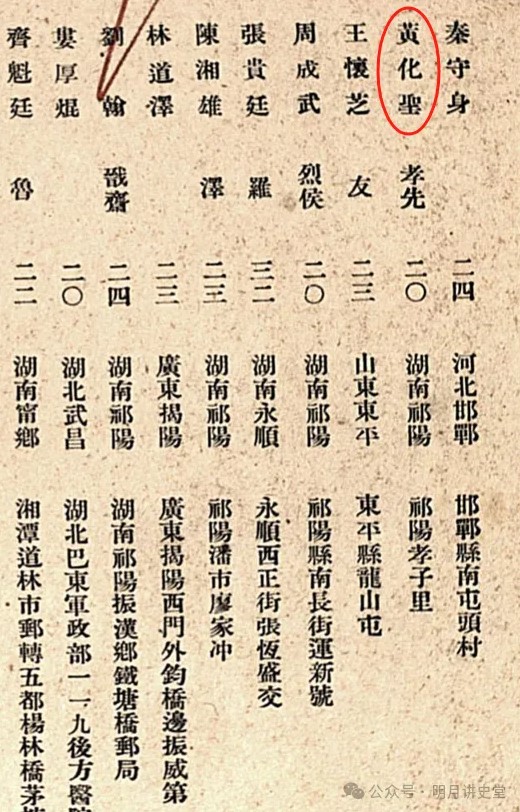 秦守身 二四 河北邯鄲 邯鄲縣南屯頭村
黃化聖 孝先 二〇 湖南祁陽 祁陽孝子里
王懷芝 友 二三 山東東平 東平縣龍山屯
周成武 烈侯 二〇 湖南祁陽 祁陽縣南長街運新號
張貴廷 羅 三二 湖南永順 永順西正街張恆盛交
陳湘雄 澤 二三 湖南祁陽 祁陽潘市廖家冲
林道澤 二三 廣東揭陽 廣東揭陽西門外鈞橋邊振威第
劉翰 戩齋 二四 湖南祁陽 湖南祁陽振漢鄉鐵塘橋郵局
婁厚焜 二〇 湖北武昌 湖北巴東軍政部一一九後方醫院
齊魁廷 魯 二二 湖南甯鄉 湘潭道林市郵轉五都楊林橋茅
公众号·明月讲史堂